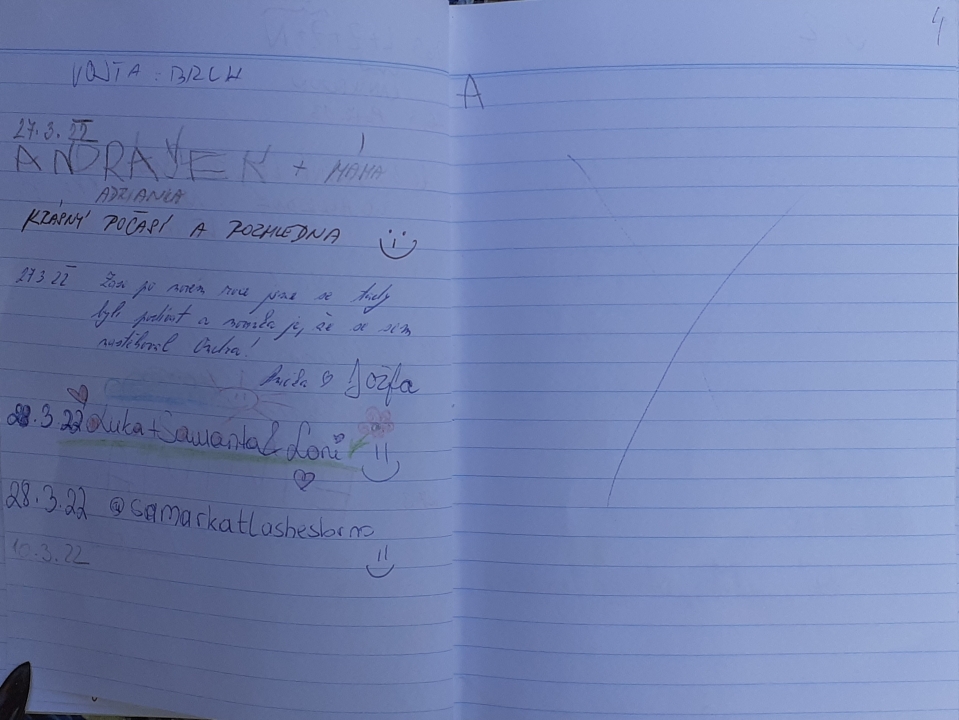 VOJTA : BRCH
27.3.22
ANDRAJEK + MÁMA
ADRIANKA
KRÁSNÝ POČASÍ A ROZHLEDNA
27.3 22 Zase po novém roce jsme se tady
byli podívat a je, že se sem
Jožfa
28.3.22 Luka + Samanta & Loni
28.3.22 @samarkatlashesbrno
10.3.22
A
4